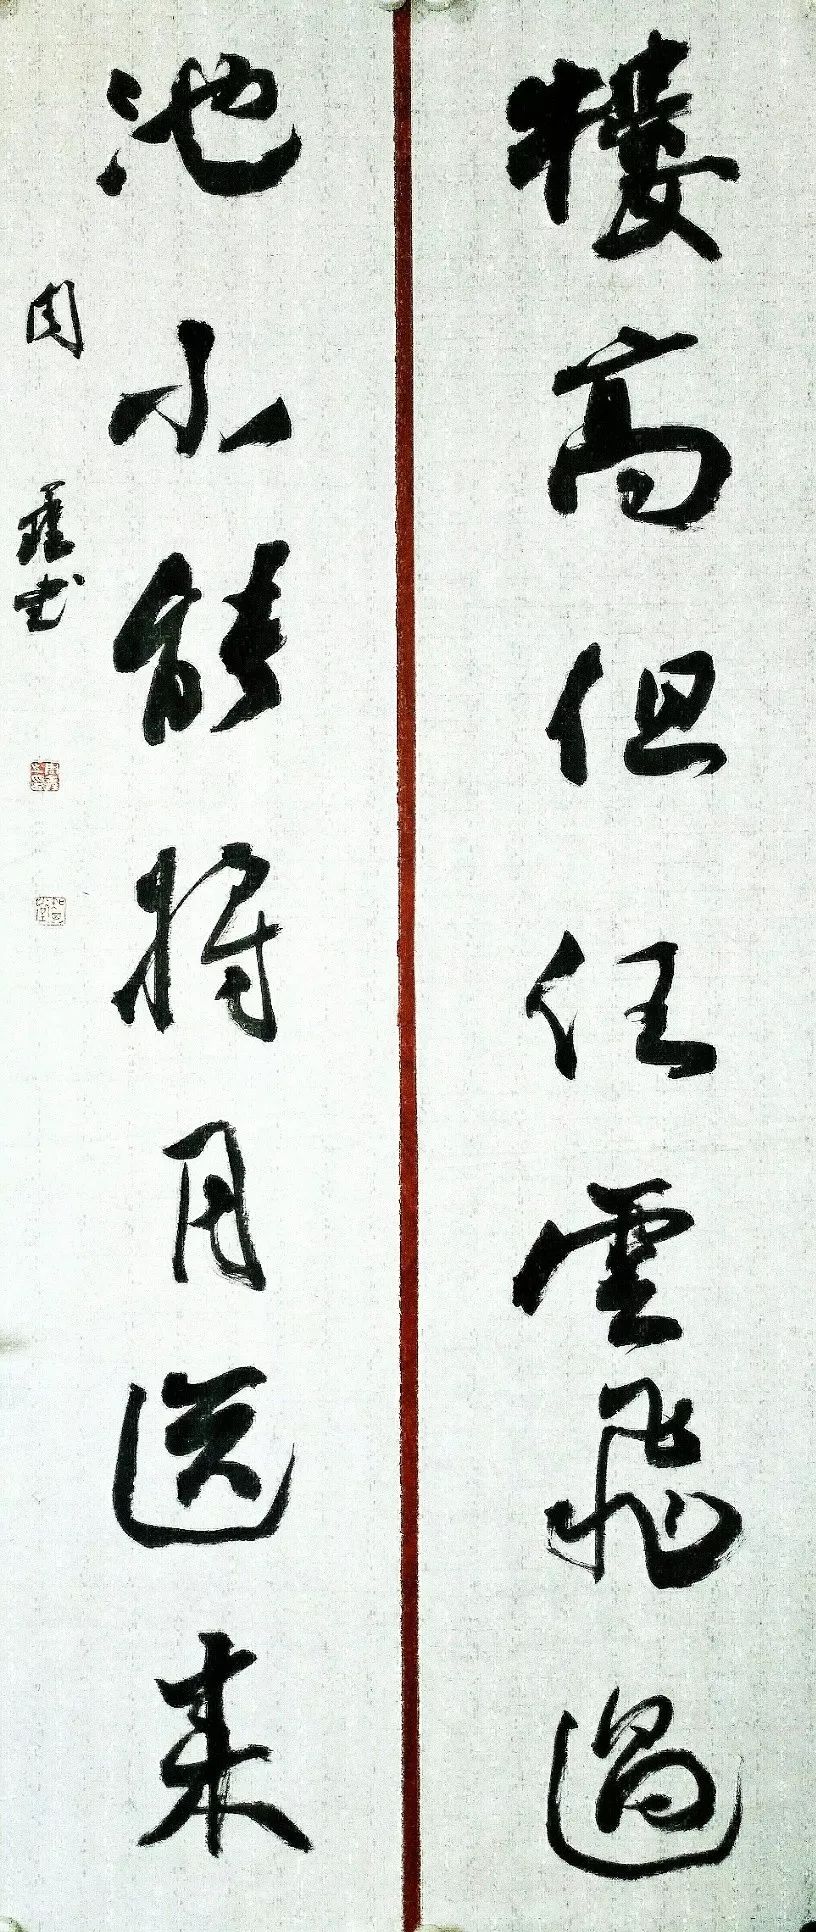 樓高但任雲飛過
池小能將月送來
周
書